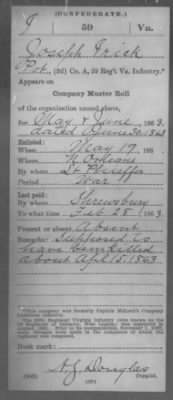 (CONFEDERATE.)
J 59 Va.
Joseph Frick
Pvt, (2d) Co. A, 59 Reg't Va. Infantry.*
Appears on
Company Muster Roll
of the organization named above,
for May & June, 1863.
dated June 30, 1863
Enlisted:
When May 19, 186
Where N. Orleans
By whom Lt.
Period War
Last paid:
By whom Shrewsbury
To what time Feb 28, 1863.
Present or absent Absent
Remarks: Supposed to
have been killed
about Apl. 15. 1863
*This company was formerly Captain
Book mark:
Douglas
(642) Copyist.